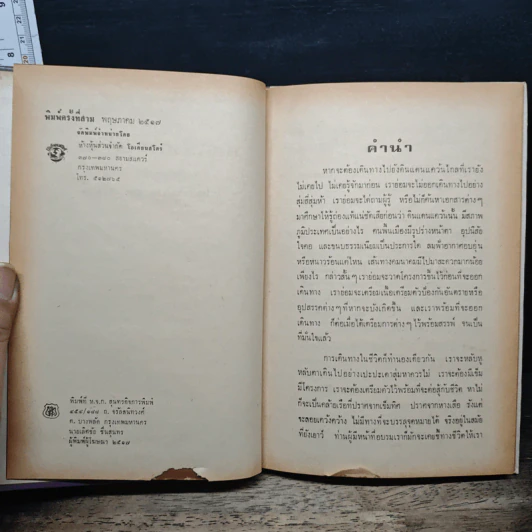 พิมพ์ครั้งที่สาม พฤษภาคม ๒๕๑๗
จัดพิมพ์จำหน่ายโดย
ห้างหุ้นส่วนจำกัด โอเดียนสโตร์
สยามสแควร์
กรุงเทพมหานคร
โทร.
พิมพ์ที่ ห.จ.ก.
กรุงเทพมหานคร
๒๕๑๗
คำนำ
หากจะต้องเดินทางไปยังดินแดนแคว้นไกลที่เรายัง
ไม่เคยไป ไม่เคยรู้จักมาก่อน เราย่อมจะไม่ออกเดินทางไปอย่าง
สุ่มสี่สุ่มห้า เราย่อมจะไต่ถามผู้รู้ หรือไม่ก็ค้นหาเอกสารต่างๆ
มาศึกษาให้รู้ถ่องแท้แน่ชัดเสียก่อนว่า ดินแดนแคว้นนั้น มีสภาพ
ภูมิประเทศเป็นอย่างไร คนพื้นเมืองมีรูปร่างหน้าตา อุปนิสัย
ใจคอ และขนบธรรมเนียมเป็นประการใด ลมฟ้าอากาศอบอุ่น
หรือหนาวร้อนแค่ไหน เส้นทางคมนาคมมีไปมาสะดวกมากน้อย
เพียงไร กล่าวสั้นๆ เราย่อมจะวาดโครงการขึ้นไว้ก่อนที่จะออก
เดินทาง เราย่อมจะเตรียมเนื้อเตรียมตัวป้องกันอันตรายหรือ
อุปสรรคต่างๆ ที่หากจะบังเกิดขึ้น และเราพร้อมที่จะออก
เดินทาง ก็ต่อเมื่อได้เตรียมการต่างๆ ไว้พร้อมสรรพ์ จนเป็น
ที่มั่นใจแล้ว
การเดินทางในชีวิตก็ทำนองเดียวกัน เราจะหลับหู
หลับตาเดินไปอย่างเปะปะเดาสุ่มหาควรไม่ เราจะต้องมีเข็ม
มีโครงการ เราจะต้องเตรียมตัวไว้พร้อมที่จะต่อสู้กับชีวิต หาไม่
ก็จะเป็นคล้ายเรือที่ปราศจากเข็มทิศ ปราศจากหางเสือ รังแต่
จะลอยเคว้งคว้าง ไม่มีทางที่จะบรรลุจุดหมายได้ จริงอยู่ในสมัย
ที่ยังเยาว์ ท่านผู้มีหน้าที่อบรมเราก็มักจะเคยชี้ทางชีวิตให้เรา